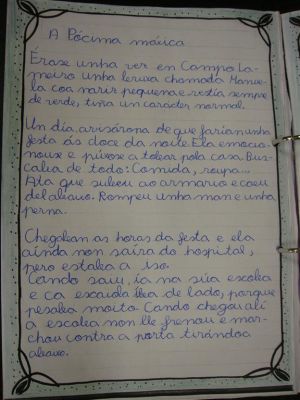 A Pócima máxica
Érase unha vez en Campo La-
meiro unha leruxa chamada Manue-
la coa nariz pequena e vestía sempre
de verde, tiña un carácter normal.
Un día avisárona de que farían unha
festa ás doce da noite Ela emocio-
nouse e púxose a tolear pola casa. Bus-
calia de todo: Comida, roupa...
Ata que subeu ao armario e caeu
del abaixo. Rompeu unha man e unha
perna.
Chegolean as horas da festa e ela
aínda non saíra do hospital,
pero estalea a iso.
Cando saiu, ía na súa escolea
e ca escaiola ílea de lado, porque
pesalea moito. Cando chegou alí
a escolea non lle frenou e mar-
chou contra a porta tirándoa
abaixo.